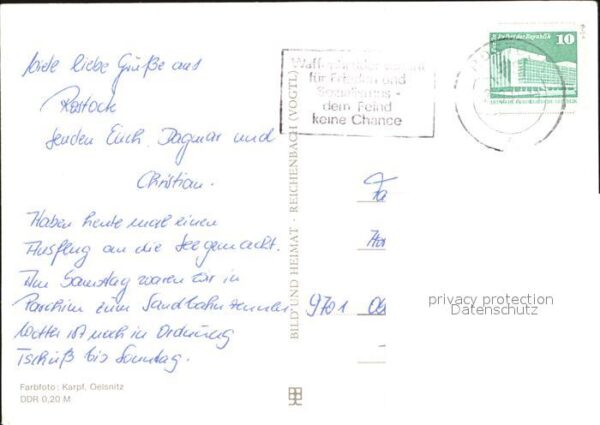 Viele liebe Grüße aus
Rostock
senden Euch, Dagmar und
Christian.
Haben heute mal einen
Ausflug an die See gemacht.
Am Samstag waren wir in
Parchim zum Sandbahnrennen.
Wetter ist noch in Ordnung
Tschüß bis Sonntag.
Farbfoto: Karpf, Oelsnitz
DDR 0,20 M
BILD UND HEIMAT · REICHENBACH (VOGTL)
für Frieden und
Sozialismus -
dem Feind
keine Chance
Palast der Republik
10
Fa
9701
privacy protection
Datenschutz